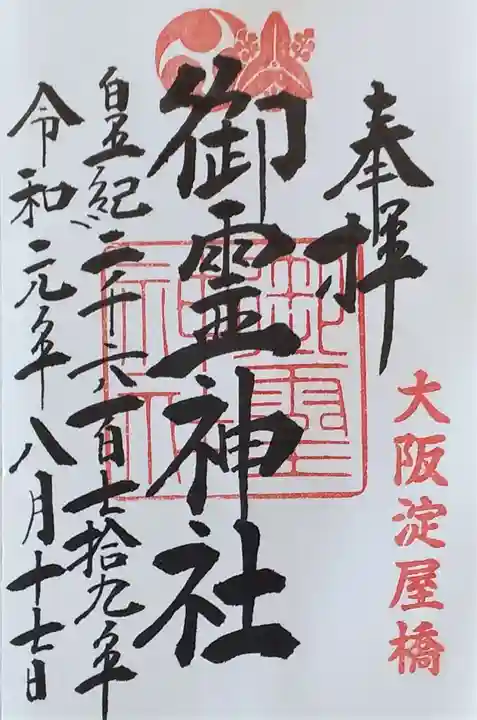 奉拝
大阪淀屋橋
御霊神社
皇紀二千六百七拾九年
令和元年八月十七日
御霊神社